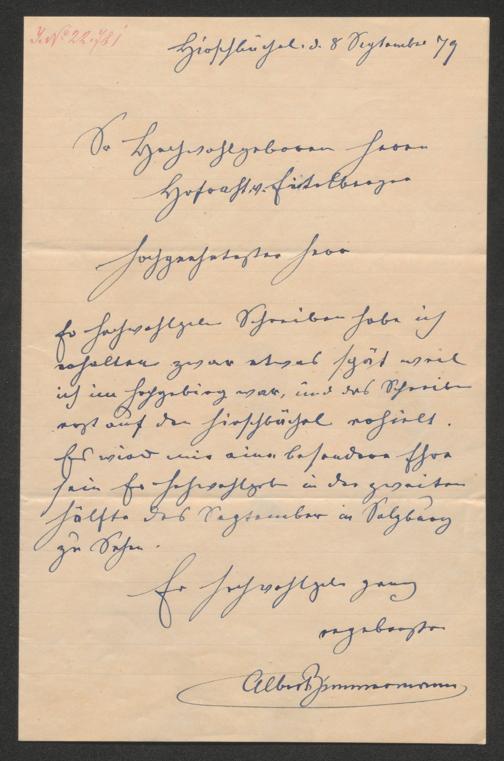 Hirschbüchel. d. 8 September 79
Sr Hochwohlgeboren Herrn
Hofrath v. Eitelberger
Hochgeehrtester Herr
Er Hochwohlgeb Schreiben habe ich
erhalten zwar etwas spät weil
ich im Hochgebirg war, und das Schreiben
erst auf den Hirschbüchel erhielt.
Es wird mir eine besondere Ehre
sein Er Hochwohlgeb in der zweiten
Hälfte des September in Salzburg
zu Sehen.
Er Hochwohlgeb ganz
ergebenster
Albert Zimmermann